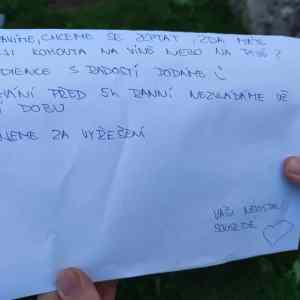 RAVÍME, CHCEME SE ZEPTAT, ZDA MÁTE
KOHOUTA NA VÍNĚ NEBO NA PIVU?
DIENCE S RADOSTÍ DODÁME
HÁNÍ PŘED 5H RANNÍ NEZVLÁDÁME
DOBU
ZA VYŘEŠENÍ
VAŠI
SOUSEDÉ